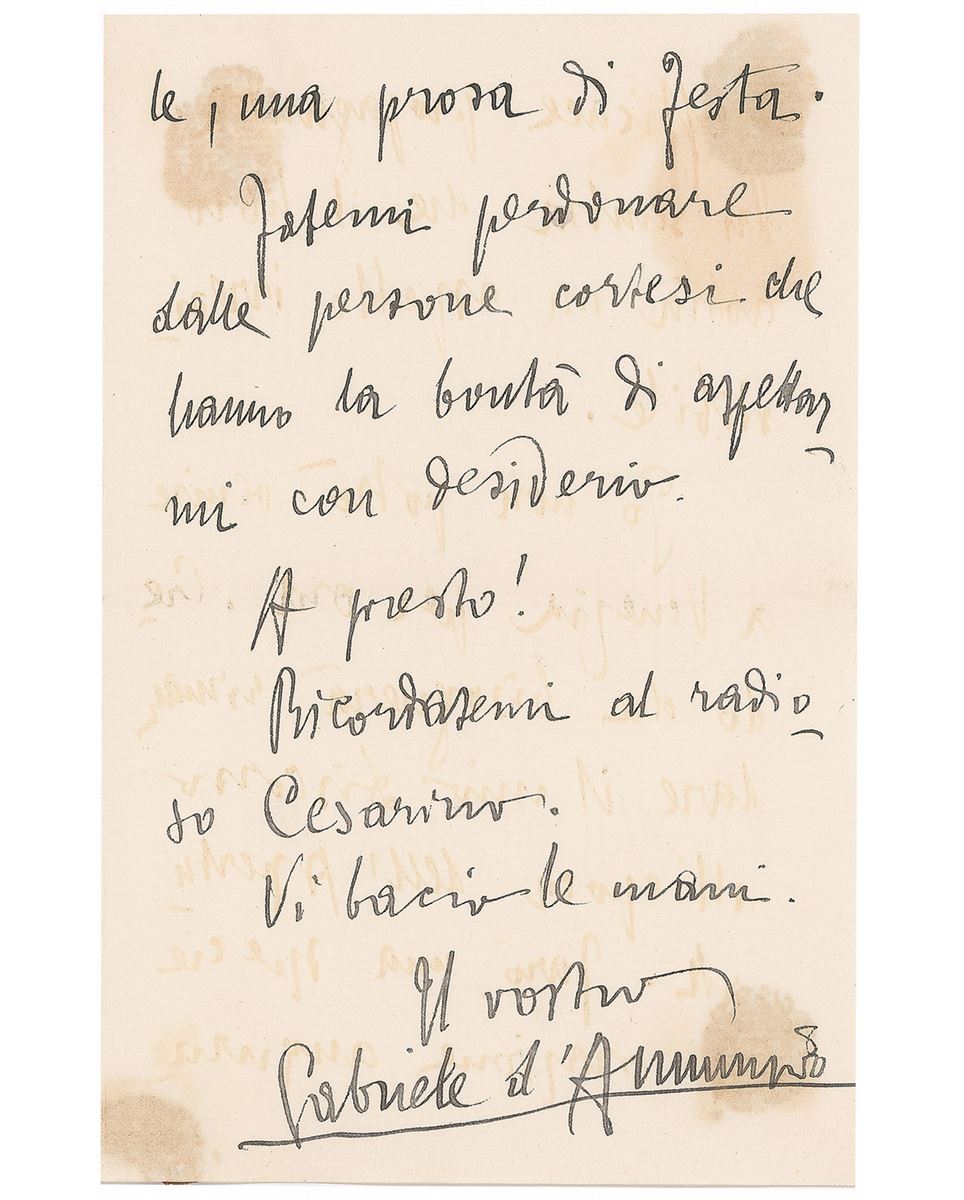 le, una prosa di festa.
Fatemi perdonare
dalle persone cortesi che
hanno la bontà di aspettar
mi con desiderio.
A presto!
Ricordatemi al radio
so Cesarino.
Vi bacio le mani.
Il vostro
Gabriele d'Annunzio